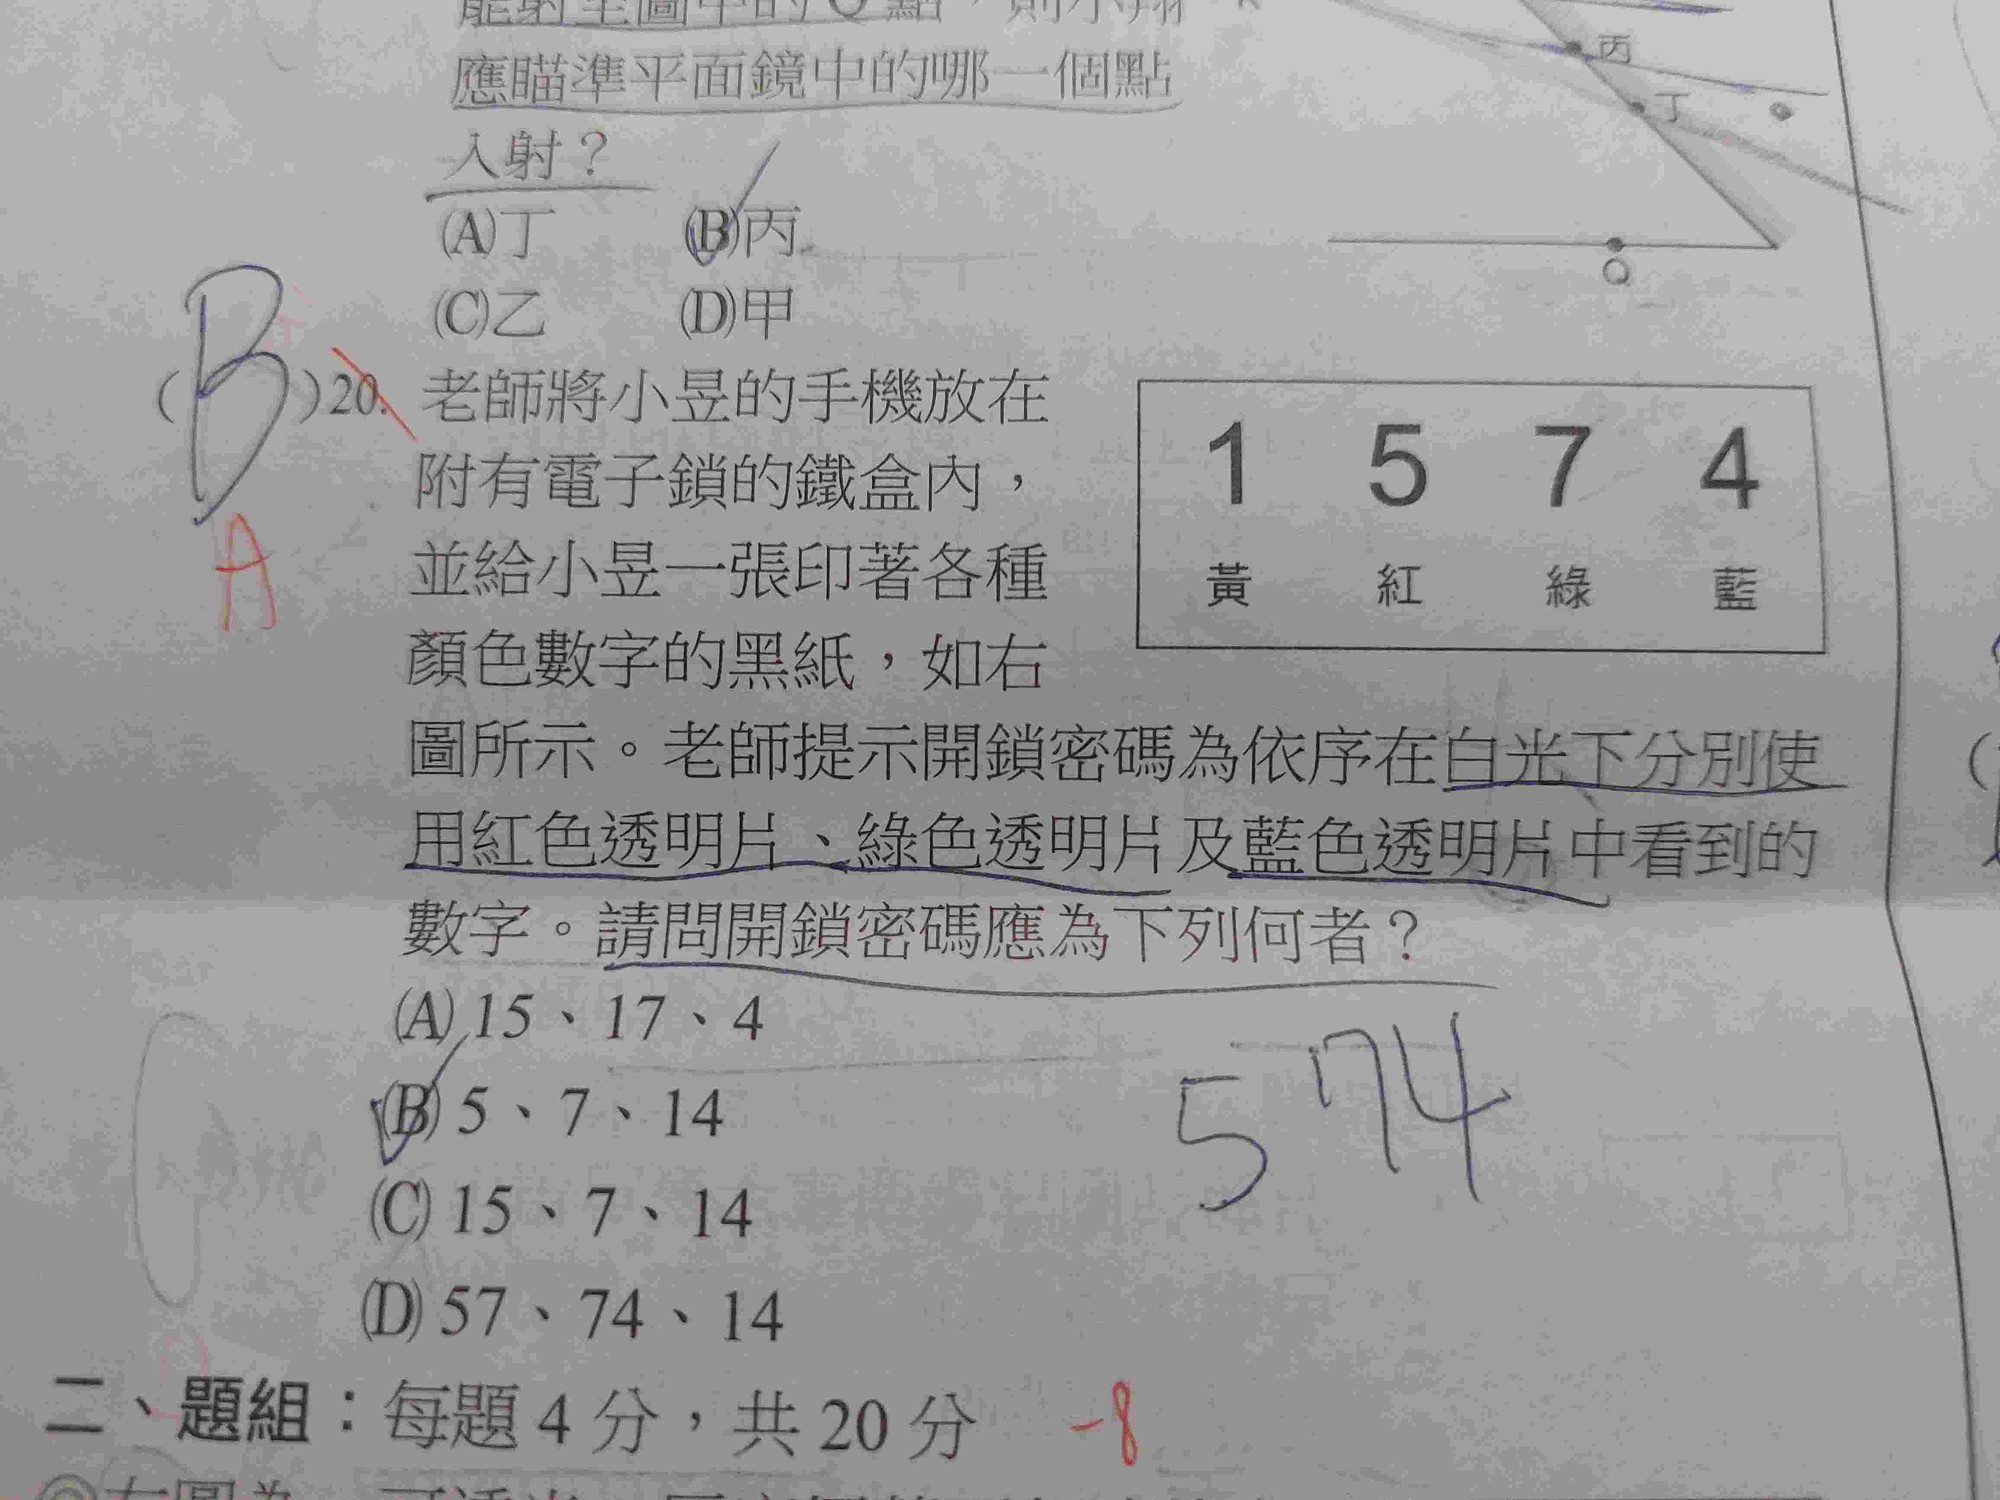 能射至圖中的Q點，則小翔
應瞄準平面鏡中的哪一個點
入射？
(A)丁 (B)丙
(C)乙 (D)甲
丙
丁
Q
(B)20. 老師將小昱的手機放在
附有電子鎖的鐵盒內，
並給小昱一張印著各種
顏色數字的黑紙，如右
A
1 5 7 4
黃 紅 綠 藍
圖所示。老師提示開鎖密碼為依序在白光下分別使
用紅色透明片、綠色透明片及藍色透明片中看到的
數字。請問開鎖密碼應為下列何者？
(A) 15、17、4
(B) 5、7、14
(C) 15、7、14
(D) 57、74、14
574
二、題組：每題 4 分，共 20 分 -8